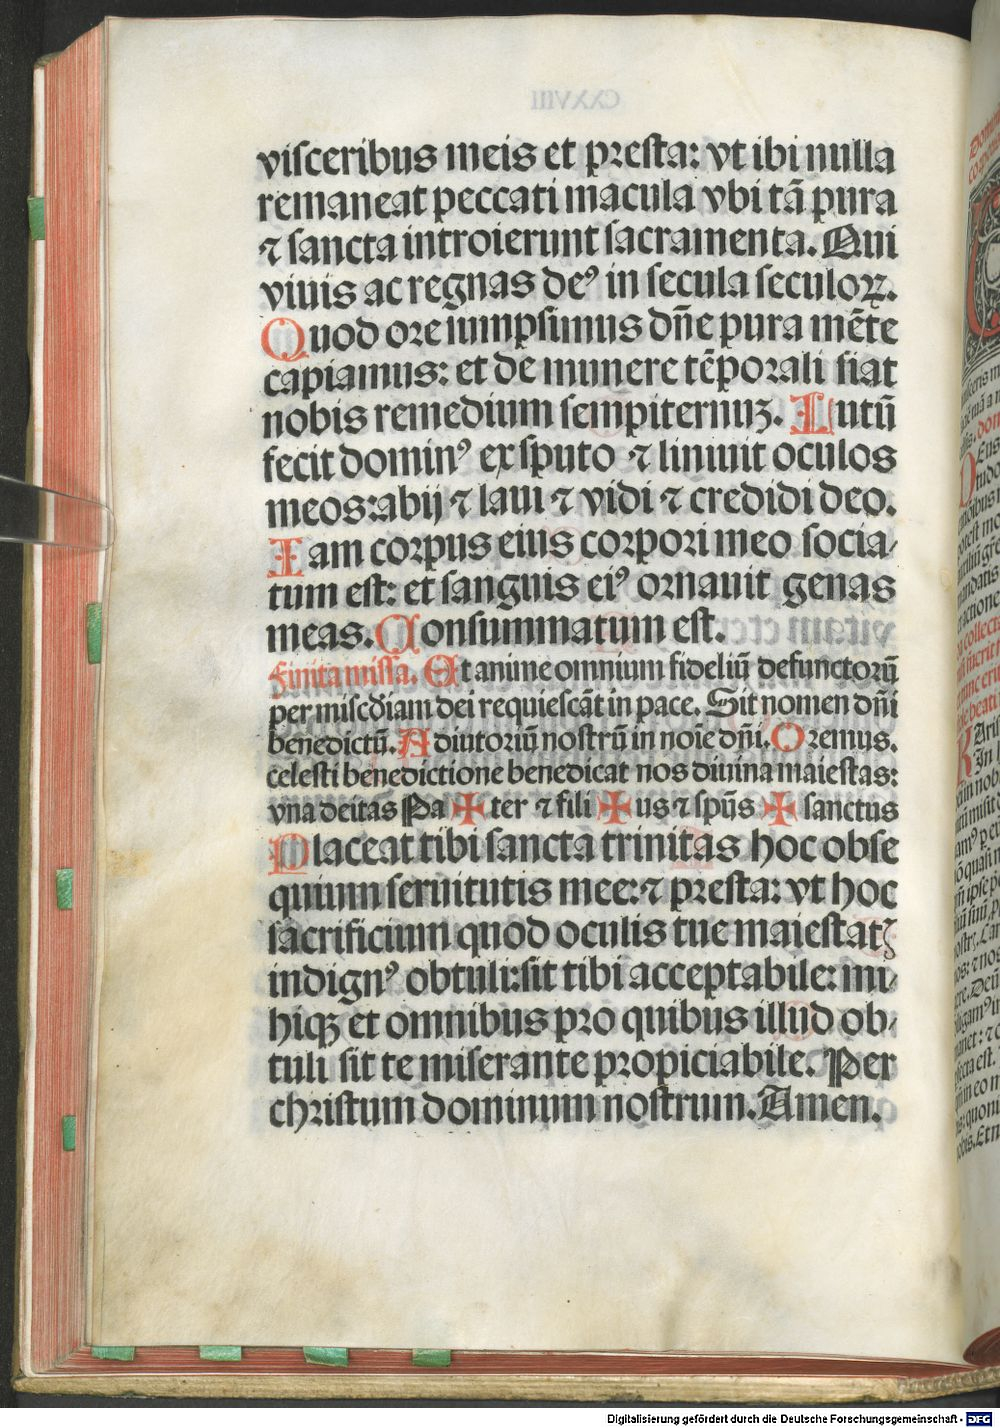 visceribus meis et presta: vt ibi nulla
remaneat peccati macula vbi tā pura
⁊ sancta introierunt sacramenta. Qui
viuis ac regnas deꝰ in secula seculoꝝ.
Quod ore sumpsimus dn̄e pura mēte
capiamus: et de munere tēporali fiat
nobis remedium sempiternuꝫ. Lutū
fecit dominꝰ ex sputo ⁊ liniuit oculos
meos: abij ⁊ laui ⁊ vidi ⁊ credidi deo.
Iam corpus eius corpori meo socia⸗
tum est: et sanguis eiꝰ ornauit genas
meas. Consummatum est.
Finita missa. Et anime omnium fideliū defunctorū
per miscd̄iam dei requiescāt in pace. Sit nomen dn̄i
benedictū. Adiutoriū nostrū in noīe dn̄i. Oremus.
celesti benedictione benedicat nos diuina maiestas:
vna deitas Pa ✠ ter ⁊ fili ✠ us ⁊ spūs ✠ sanctus
Placeat tibi sancta trinitas hoc obse
quium seruitutis mee: ⁊ presta: vt hoc
sacrificium quod oculis tue maiestatꝭ
indignꝰ obtuli: sit tibi acceptabile: mi⸗
hiqꝫ et omnibus pro quibus illud ob⸗
tuli sit te miserante propiciabile. Per
christum dominum nostrum. Amen.
Digitalisierung gefördert durch die Deutsche Forschungsgemeinschaft - DFG